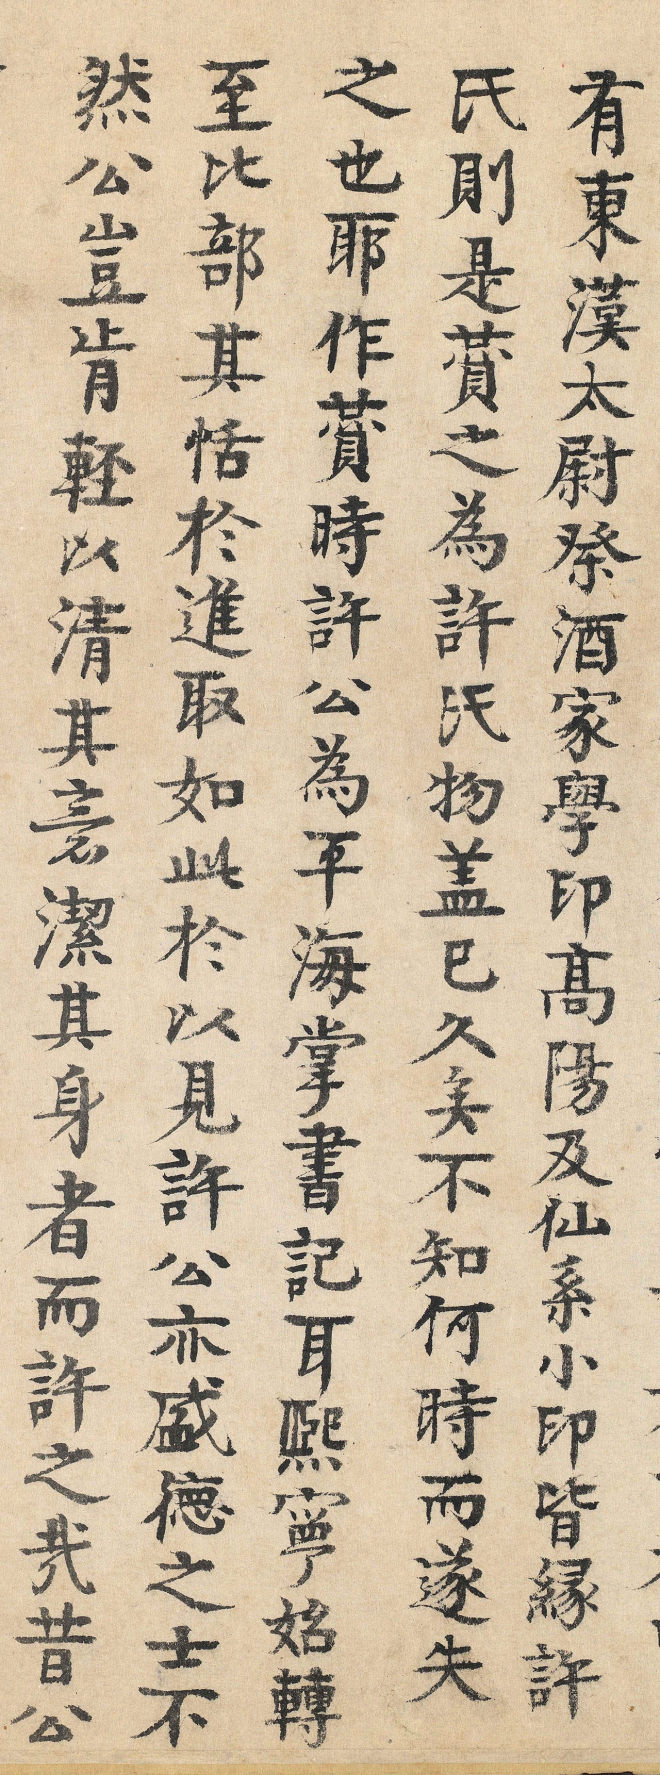 有東漢太尉祭酒家學印高陽及仙系小印皆緣許
氏則是蕡之為許氏物盖已久矣不知何時而遂失
之也耶作蕡時許公為平海掌書記耳熙寧始轉
至比部其恬於進取如此於以見許公亦盛德之士不
然公豈肯輕以清其意潔其身者而許之哉昔公